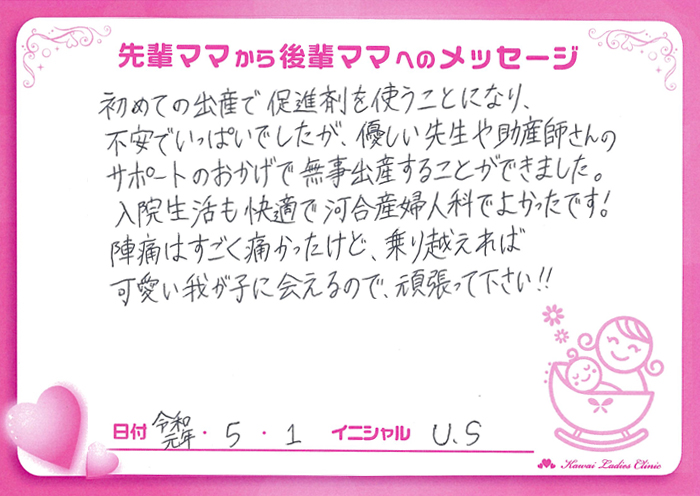 先輩ママから後輩ママへのメッセージ
初めての出産で促進剤を使うことになり、
不安でいっぱいでしたが、優しい先生や助産師さんの
サポートのおかげで無事出産することができました。
入院生活も快適で河合産婦人科でよかったです!
陣痛はすごく痛かったけど、乗り越えれば
可愛い我が子に会えるので、頑張って下さい!!
日付 令和元年・5・1 イニシャル U.S
Kawai Ladies Clinic